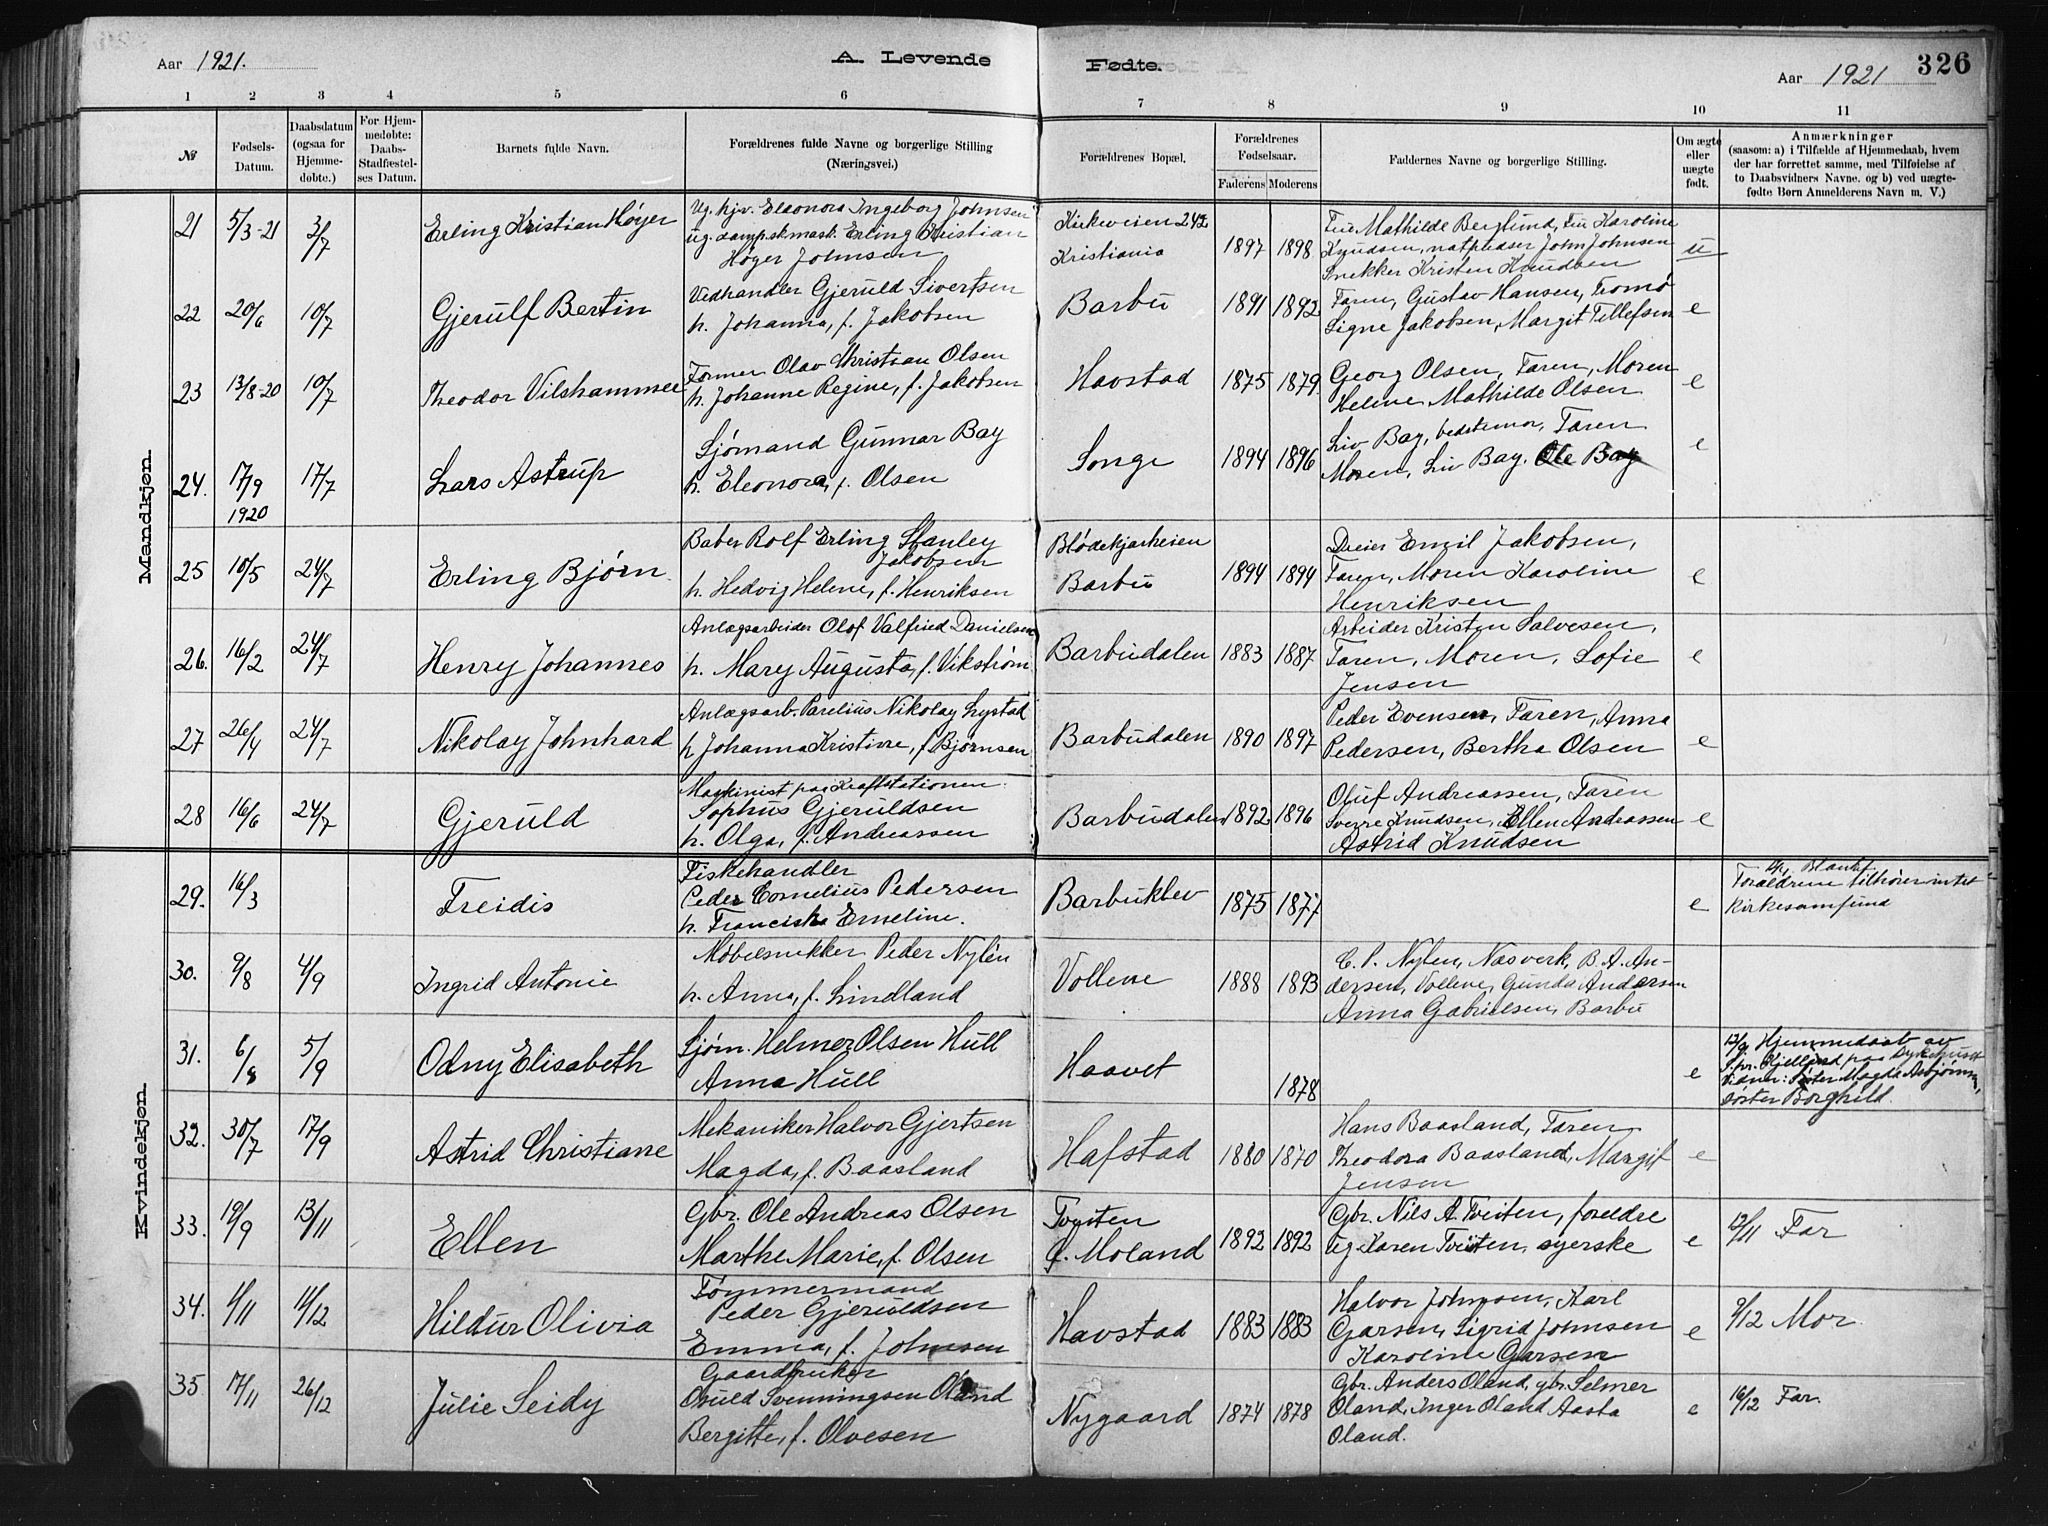 Aar 1921.
A. Levende
Fødte.
Aar 1921
326
1 2 3 4 5 6 7 8 9 10 11
№
Fødsels-
Datum.
Daabsdatum
(ogsaa for
Hjemme-
døbte.)
For Hjem-
medøbte:
Daabs-
Stadfæstel-
ses Datum.
Barnets fulde Navn.
Forældrenes fulde Navne og borgerlige Stilling
(Næringsvei.)
Forældrenes Bopæl.
Forældrenes
Fødselsaar.
Faderens Moderens
Faddernes Navne og borgerlige Stilling.
Om ægte
eller
uægte
født.
Anmærkninger
(saasom: a) i Tilfælde af Hjemmedaab, hvem
der har forrettet samme, med Tilføielse af
to Daabsvidners Navne. og b) ved uægte-
fødte Børn Anmelderens Navn m. V.)
Mandkjøn.
21 5/3-21 3/7 Erling Kristian Høyer
Ug. hjv. Eleonora Ingeborg Johnsen
ug. damp.sk.mask. Erling Kristian
Høyer Johnsen
Kirkeveien 242
Kristiania
1897 1898
Fru Mathilde Berglund, Fru Karoline
Knudsen, John Johnsen
Snekker Kristen Knudsen
u
22 20/6 10/7 Gjerulf Bertin
Vedhandler Gjeruld Sivertsen
h. Johanna, f. Jakobsen
Barbu
1891 1892
Faren, Gustav Hansen, Tromø
Signe Jakobsen, Margit Tellefsen
e
23 13/8-20 10/7 Theodor Vilshammer
Former Olav Christian Olsen
h. Johanne Regine, f. Jakobsen
Havstad
1875 1879.
Georg Olsen, Faren, Moren
Helene Mathilde Olsen
e
24. 17/9 1920 17/7 Lars Astrup
Sjømand Gunnar Bay
h. Eleonora, f. Olsen
Songe
1894 1896
Liv Bay, bedstemor, Faren
Moren, Liv Bay. Ole Bay
e
25 10/5 24/7 Erling Bjørn.
Rolf Erling Stanley
Jakobsen
h. Hedvig Helene, f. Henriksen
Blødekjærheien
Barbu
1894 1894
Dreier Emil Jakobsen,
Faren, Moren Karoline
Henriksen
e
26. 16/2 24/7 Henry Johannes
Anlægsarbeider Olof Valfried Danielsen
h. Mary Augusta, f. Vikstrøm
Barbudalen
1883 1887
Arbeider Kristen Salvesen,
Faren, Moren, Sofie
Jensen
e
27 26/4 24/7 Nikolay Johnhard
Anlægsarb. Parelius Nikolay Lystad
h Johanna Kristine, f. Bjørnsen
Barbudalen
1890 1897
Peder Evensen, Faren, Anna
Pedersen, Bertha Olsen
e
28 16/6 24/7 Gjeruld
Maskinist paa Kraftstationen
Sophus Gjeruldsen
h. Olga, f. Andreassen
Barbudalen
1892 1896
Oluf Andreassen, Faren
Sverre Knudsen, Ellen Andreassen
Astrid Knudsen
e
Kvindekjøn.
29. 16/3 Freidis
Fiskehandler
Peder Cornelius Pedersen
h. Franciska Emeline.
Barbuklev
1875 1877
e
Forældrene tilhører intet
kirkesamfund
30. 9/8 4/9 Ingrid Antonie
Møbelsnekker Peder Nylén
h. Anna, f. Lindland
Vollene
1888 1893
C. P. Nylen, Næsverk, B. A. An-
dersen, Vollene, Gunda Andersen
Anna Gabrielsen, Barbu
31. 6/8 5/9 Odny Elisabeth
Sjøm. Helmer Olsen Hull
Anna Hull
Haavet
1878
e
12/9 Hjemmedaab av
S.pr. Kjelland paa Sykehuset
Vidner: Søster Magda Asbjørnsen,
søster Borghild.
32. 30/7 17/9 Astrid Christiane
Mekaniker Halvor Gjertsen
Magda, f. Baasland
Hafstad
1880 1870
Hans Baasland, Faren
Theodora Baasland, Margit
Jensen
e
33. 19/9 13/11 Ellen
Gbr. Ole Andreas Olsen
Marthe Marie, f. Olsen
Tveiten
ø. Moland
1892 1892
Gbr. Nils A. Tveiten, foreldre
ug. Karen Tveiten, syerske
e
12/11 Far
34. 1/11 11/12 Hildur Olivia
Tømmermand
Peder Gjeruldsen
Emma, f. Johnsen
Havstad
1883 1883
Halvor Johnsen, Karl
Garsen, Sigrid Johnsen
Karoline Garsen
e
9/12 Mor
35 17/11 26/12 Julie Seidy
Gaardbruker
Osuld Svenningsen Oland
Bergitte, f. Olvesen
Nygaard
1874 1878
Gbr. Anders Oland, gbr. Selmer
Oland, Inger Oland Aasta
Oland.
e
16/12 Far.